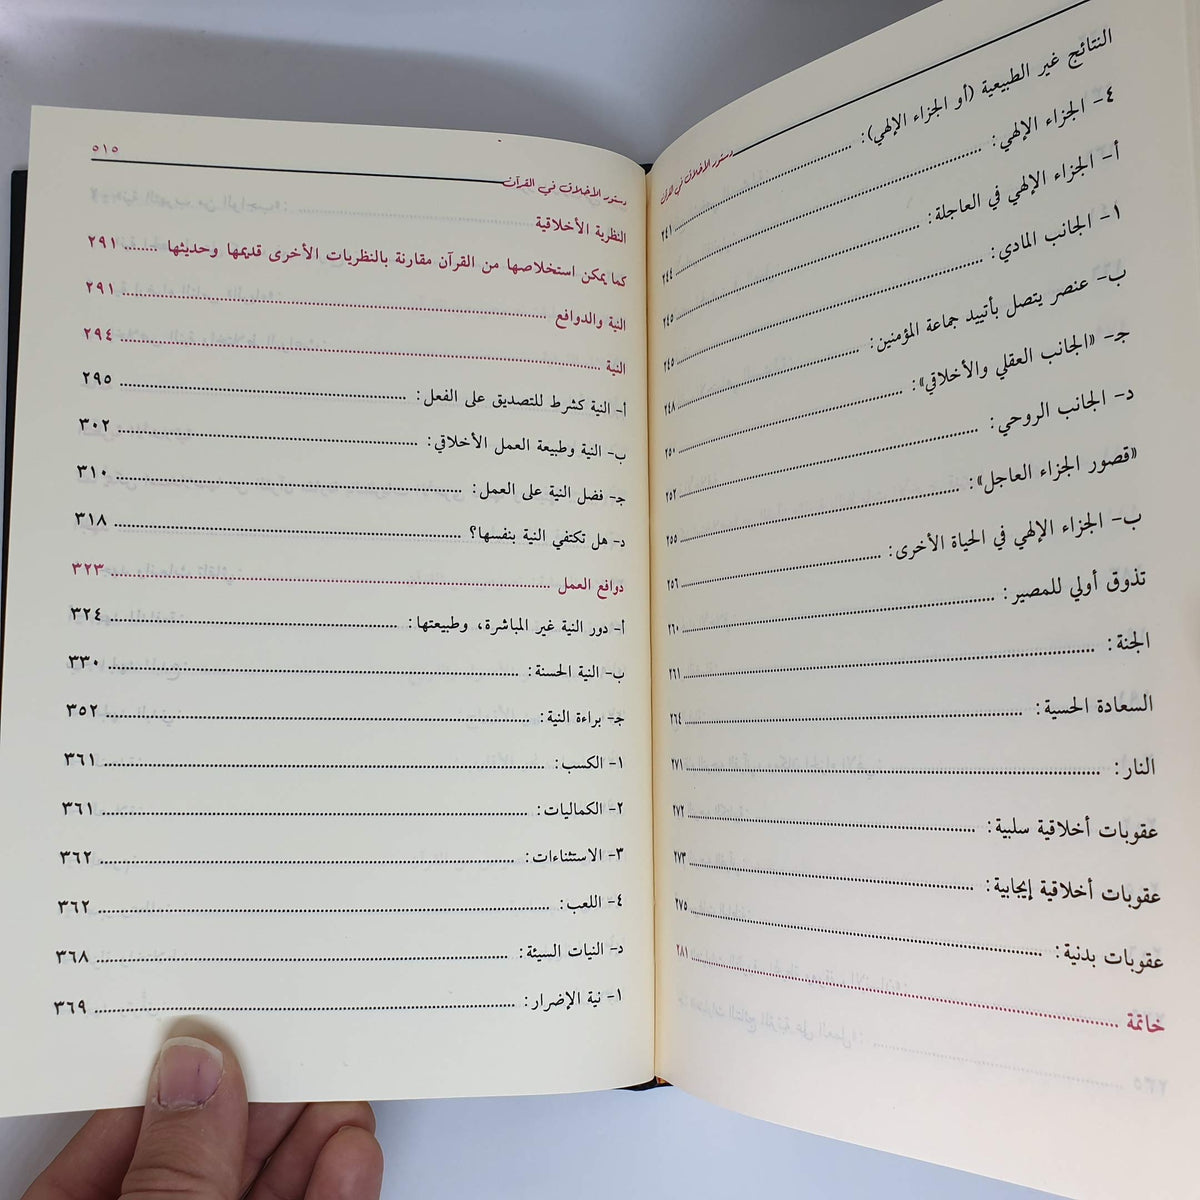 دستور الأخلاق في القرآن
النتائج غير الطبيعية (أو الجزاء الإلهي): ........ ٢٤١
٤- الجزاء الإلهي: ........ ٢٤٤
أ- الجزاء الإلهي في العاجلة: ........ ٢٤٥
١- الجانب المادي: ........ ٢٤٥
ب- عنصر يتصل بأتييد جماعة المؤمنين: ........ ٢٤٨
جـ- «الجانب العقلي والأخلاقي»: ........ ٢٥٠
د- الجانب الروحي: ........ ٢٥٢
«قصور الجزاء العاجل»: ........ ٢٥٥
ب- الجزاء الإلهي في الحياة الأخرى: ........ ٢٥٦
تذوق أولي للمصير: ........ ٢٦٠
الجنة: ........ ٢٦١
السعادة الحسية: ........ ٢٦٤
النار: ........ ٢٧١
عقوبات أخلاقية سلبية: ........ ٢٧٢
عقوبات أخلاقية إيجابية: ........ ٢٧٣
عقوبات بدنية: ........ ٢٧٥
خاتمة ........ ٢٨١
دستور الأخلاق في القرآن ٥١٥
النظرية الأخلاقية
كما يمكن استخلاصها من القرآن مقارنة بالنظريات الأخرى قديمها وحديثها ........ ٢٩١
النية والدوافع ........ ٢٩١
النية ........ ٢٩٤
أ- النية كشرط للتصديق على الفعل: ........ ٢٩٥
ب- النية وطبيعة العمل الأخلاقي: ........ ٣٠٢
جـ- فضل النية على العمل: ........ ٣١٠
د- هل تكتفي النية بنفسها؟ ........ ٣١٨
دوافع العمل ........ ٣٢٣
أ- دور النية غير المباشرة، وطبيعتها: ........ ٣٢٤
ب- النية الحسنة: ........ ٣٣٠
جـ- براءة النية: ........ ٣٥٢
١- الكسب: ........ ٣٦١
٢- الكماليات: ........ ٣٦١
٣- الاستثناءات: ........ ٣٦٢
٤- اللعب: ........ ٣٦٢
د- النيات السيئة: ........ ٣٦٨
١- نية الإضرار: ........ ٣٦٩